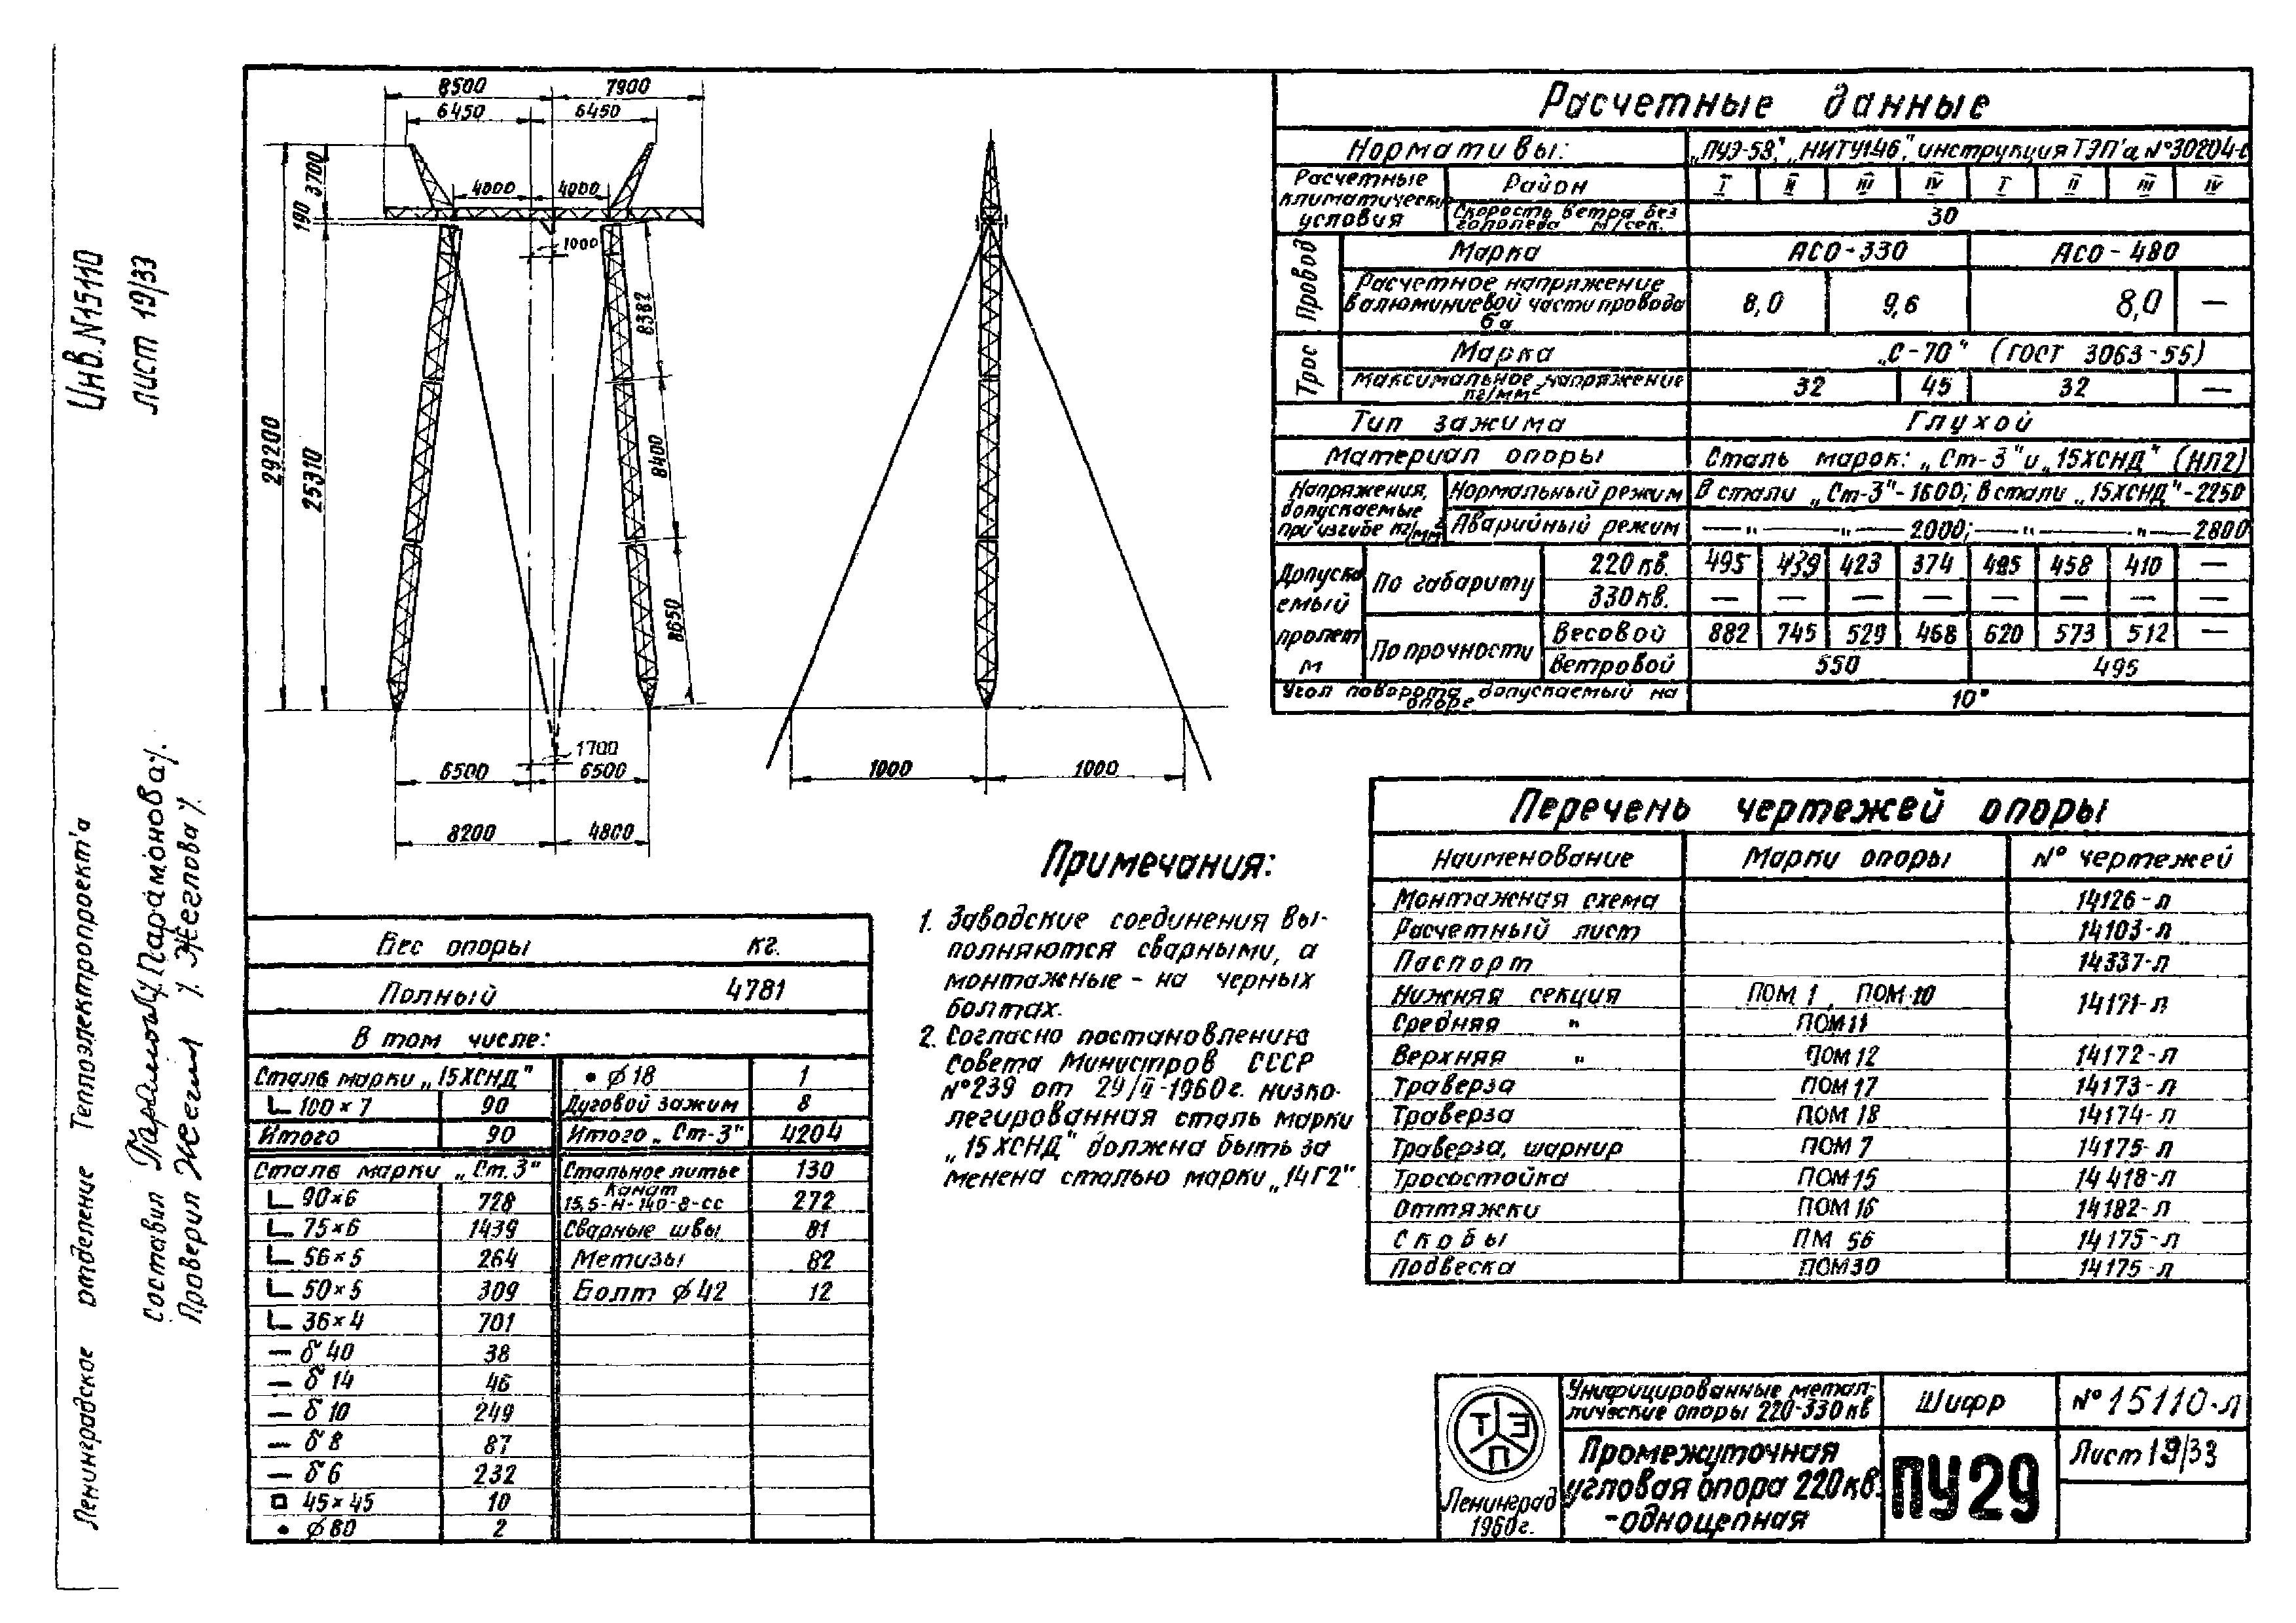 Инв.N15110
лист 19/33
Ленинградское отделение Теплоэлектропроект'а
Составил /Парамонова/.
Проверил /.Жеглова/.
8500
7900
6450
6450
29200
3700
190
25310
4000
4000
1000
8382
8400
8650
1700
6500
6500
8200
4800
1000
1000
Расчетные данные
Нормативы: „ПУЭ-58,“ „НИТУ146,“ инструкция ТЭП'а N°30204-с
Расчетные климатическ. условия
Район I II III IV I II III IV
Скорость ветра без гололеда м/сек. 30
Провод
Марка АСО-330 АСО-480
Расчетное напряжение
в алюминиевой части провода
бa 8,0 9,6 8,0 —
Трос
Марка „С-70“ (ГОСТ 3063-55)
Максимальное напряжение
кг/мм² 32 45 32 —
Тип зажима Глухой
Материал опоры Сталь марок: „Ст-3“ и „15ХСНД“ (НЛ2)
Напряжения,
допускаемые
при изгибе кг/мм²
Нормальный режим В стали „Ст-3“-1600; В стали „15ХСНД“-2250
Аварийный режим —„——„—2000;—„——„—2800
Допускаемый пролет м
По габариту
220 кв. 495 439 423 374 495 458 410 —
330 кв. — — — — — — — —
По прочности
Весовой 882 745 529 468 620 573 512 —
Ветровой 550 495
Угол поворота допускаемый на
опоре 10°
Перечень чертежей опоры
Наименование Марки опоры N° чертежей
Монтажная схема 14126-л
Расчетный лист 14103-л
Паспорт 14337-л
Нижняя секция ПОМ 1, ПОМ 10 14171-л
Средняя „ ПОМ11
Верхняя „ ПОМ 12 14172-л
Траверза ПОМ 17 14173-л
Траверза ПОМ 18 14174-л
Траверза, шарнир ПОМ 7 14175-л
Тросостойка ПОМ15 14418-л
Оттяжки ПОМ 16 14182-л
Скобы ПМ 56 14175-л
Подвеска ПОМ30 14175-л
Примечания:
1. Заводские соединения вы-
полняются сварными, а
монтажные - на черных
болтах.
2. Согласно постановлению
Совета Министров СССР
N°239 от 29/II-1960г. низко-
легированная сталь марки
„15ХСНД“ должна быть за
менена сталью марки „14Г2“.
Вес опоры кг.
Полный 4781
В том числе:
Сталь марки „15ХСНД“ • ⌀18 1
∟ 100×7 90 Дуговой зажим 8
Итого 90 Итого „Ст-3“ 4204
Сталь марки „Ст.3“ Стальное литье 130
∟ 90×6 728 Канат 15,5-Н-140-В-СС 272
∟ 75×6 1439 Сварные швы 81
∟ 56×5 264 Метизы 82
∟ 50×5 309 Болт ⌀42 12
∟ 36×4 701
— δ 40 38
— δ 14 46
— δ 10 249
— δ 8 87
— δ 6 232
□ 45×45 10
• ⌀80 2
ТЭП
Ленинград
1960г.
Унифицированные метал-
лические опоры 220-330кв
Промежуточная
угловая опора 220кв.
-одноцепная
Шифр
ПУ29
N°15110-л
Лист 19/33